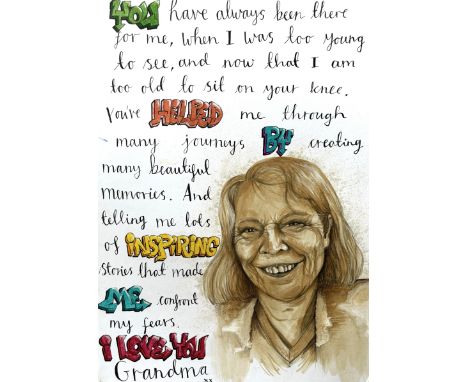 YOU have always been there
for me, when I was too young
to see, and now that I am
too old to sit on your knee.
You've HELPED me through
many journeys BY creating
many beautiful
memories. And
telling me lots
of INSPIRING
stories that made
ME confront
my fears.
I LOVE YOU
Grandma xx